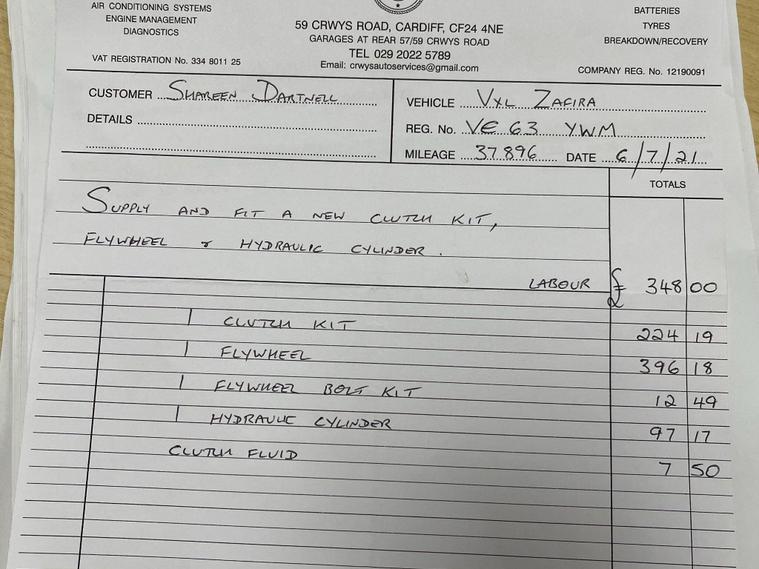 AIR CONDITIONING SYSTEMS
ENGINE MANAGEMENT
DIAGNOSTICS
VAT REGISTRATION No. 334 8011 25
59 CRWYS ROAD, CARDIFF, CF24 4NE
GARAGES AT REAR 57/59 CRWYS ROAD
TEL 029 2022 5789
Email: crwysautoservices@gmail.com
BATTERIES
TYRES
BREAKDOWN/RECOVERY
COMPANY REG. No. 12190091
CUSTOMER SHAREEN DARTNELL
DETAILS
VEHICLE VXL ZAFIRA
REG. No. VE 63 YWM
MILEAGE 37896 DATE 6/7/21
TOTALS
SUPPLY AND FIT A NEW CLUTCH KIT,
FLYWHEEL & HYDRAULIC CYLINDER.
LABOUR £ 348 00
1 CLUTCH KIT 224 19
1 FLYWHEEL 396 18
1 FLYWHEEL BOLT KIT 12 49
1 HYDRAULIC CYLINDER 97 17
CLUTCH FLUID 7 50